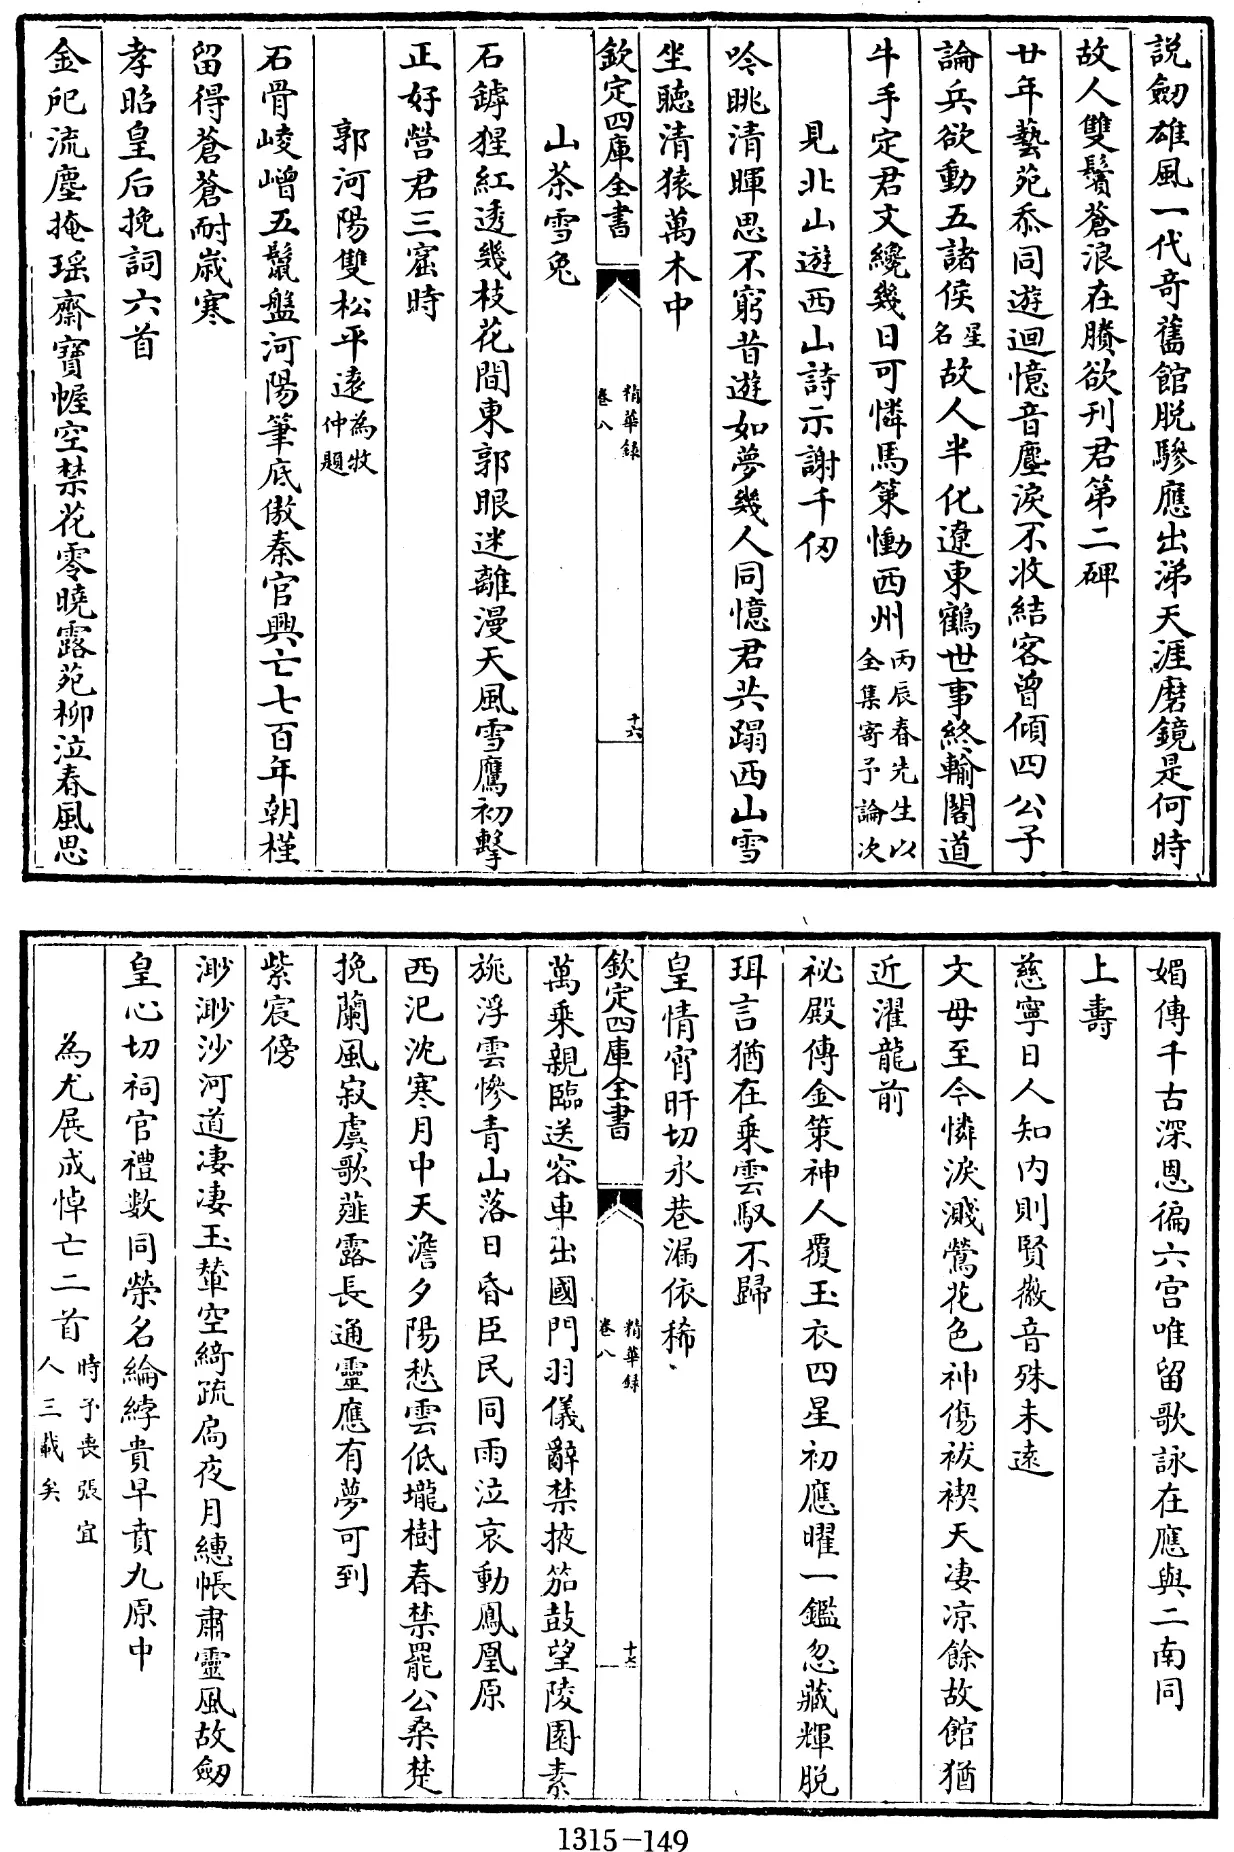 説劒雄風一代竒舊館脱驂應出涕天涯磨鏡是何時
故人雙鬢蒼浪在賸欲刋君第二碑
廿年藝苑忝同遊迴憶音塵淚不收結客曽傾四公子
論兵欲動五諸侯星名故人半化遼東鶴世事終輸閣道
牛手定君文纔幾日可憐馬䇿慟西州丙辰春先生以全集寄予論次
見北山遊西山詩示謝千仞
吟眺清暉思不窮昔遊如夢幾人同憶君共蹋西山雪
坐聽清猿萬木中
欽定四庫全書
精華録
卷八
十六
山茶雪兎
石鏬猩紅透幾枝花間東郭眼迷離漫天風雪鷹初擊
正好營君三窟時
郭河陽雙松平逺為牧仲題
石骨崚嶒五鬛盤河陽筆底傲秦官興亡七百年朝槿
留得蒼蒼耐歳寒
孝昭皇后挽詞六首
金戺流塵掩瑶齋寶幄空禁花零曉露苑柳泣春風思
媚傳千古深恩徧六宫唯留歌詠在應與二南同
上壽
慈寧日人知内則賢徽音殊未遠
文母至今憐淚濺鶯花色神傷祓禊天凄凉餘故館猶
近濯龍前
祕殿傳金䇿神人覆玉衣四星初應曜一鑑忽藏輝脱
珥言猶在乗雲馭不歸
皇情宵旰切永巷漏依稀
欽定四庫全書
精華録
卷八
十七
萬乗親臨送容車出國門羽儀辭禁掖笳鼓望陵園素
旐浮雲惨青山落日昏臣民同雨泣哀動鳳凰原
西汜沈寒月中天澹夕陽愁雲低壠樹春禁罷公桑楚
挽蘭風寂虞歌薤露長通靈應有夢可到
紫宸傍
渺渺沙河道凄凄玉輦空綺疏扃夜月繐帳肅靈風故劒
皇心切祠官禮數同榮名綸綍貴早賁九原中
為尤展成悼亡二首時予喪張宜人三載矣
1315-149